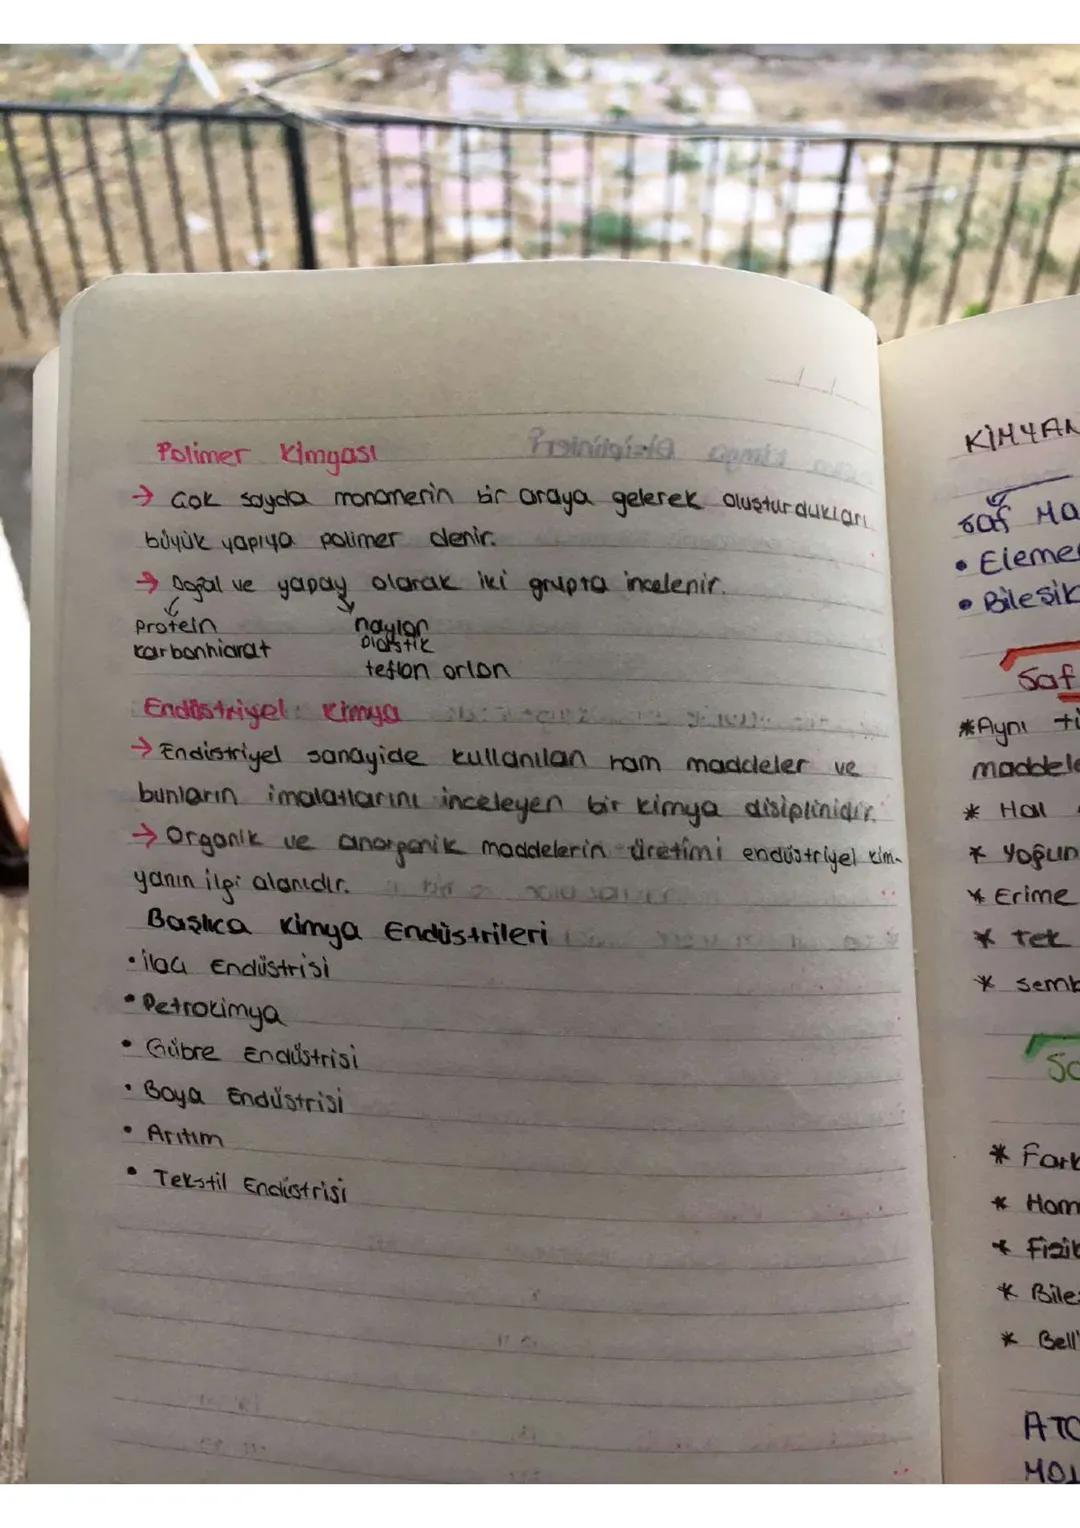 Polimer Kimyası
→ Çok sayda monomerin bir araya gelerek oluşturdukları
büyük yapıya polimer denir.
→ Doğal ve yapay olarak iki grupta incelenir.
Protein
karbonhidrat
naylon
plastik
teflon orlon
Endüstriyel Kimya
→ Endistriyel sanayide kullanılan ham maddeler ve
bunların imalatlarını inceleyen bir kimya disiplinidir.
→ Organik ve anorganik maddelerin üretimi endüstriyel kim-
yanın ilgi alanıdır.
Başlıca Kimya Endüstrileri
• ilaç Endüstrisi
• Petrokimya
• Gübre Endüstrisi
• Boya Endüstrisi
• Arıtım
• Tekstil Endüstrisi
KİMYAN
Saf Ma
• Elemen
• Bileşik
Saf
* Aynı ti
maddele
* Hal
* Yoğun
* Erime
* Tek
* semb
* Fark
* Hom
* Fizik
* Bile
* Bell
ATO
MOL